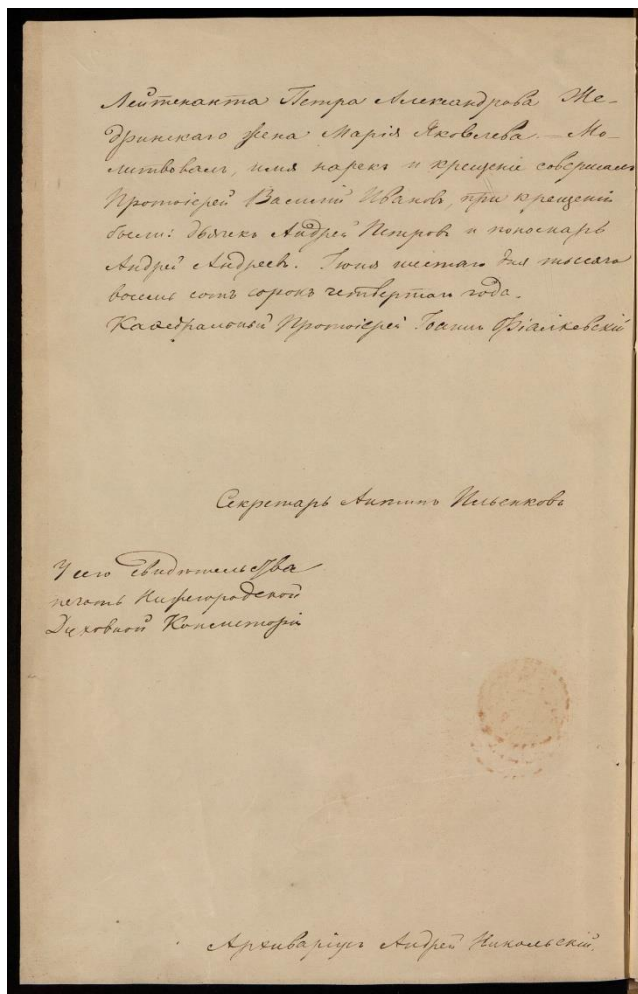 Лейтенанта Петра Александрова Же-
дринскаго жена Марія Яковлева. — Мо-
литвовалъ, имя нарекъ и крещеніе совершалъ
Протоіерей Василій Ивановъ, при крещеніи
были: дьячекъ Андрей Петровъ и пономарь
Андрей Андреевъ. Іюня шестаго дня тысяча
восемь сотъ сорокъ четвертаго года.
Каѳедральный Протоіерей Іоаннъ Фіалковскій
Секретарь Антипъ Ильенковъ
У сего свидѣтельства
печать Нижегородской
Духовной Консисторіи
Архиваріусъ Андрей Никольскій.